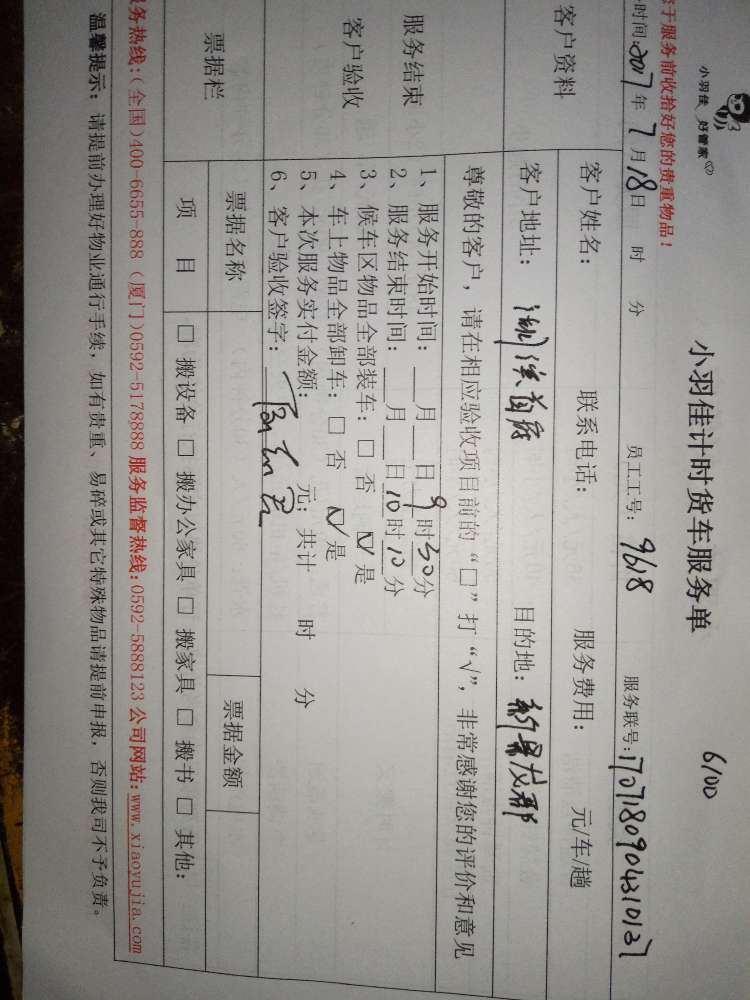 小羽佳 好管家
于服务前收拾好您的贵重物品！
小羽佳计时货车服务单
6100
时间：2017年7月18日 时 分 员工工号：9618 服务联号：170718090431013
客户资料
客户姓名： 联系电话： 服务费用： 元/车/趟
客户地址： 目的地：
服务结束
客户验收
尊敬的客户，请在相应验收项目前的“□”打“√”，非常感谢您的评价和意见
1、服务开始时间：___月___日9时30分
2、服务结束时间：___月___日10时10分
3、候车区物品全部装车：□ 否 ☑ 是
4、车上物品全部卸车：□ 否 ☑ 是
5、本次服务实付金额： 元；共计 时 分
6、客户验收签字：
票据栏
票据名称 票据金额
项 目 □ 搬设备 □ 搬办公家具 □ 搬家具 □ 搬书 □ 其他：
务热线：(全国)400-6655-888 (厦门)0592-5178888 服务监督热线：0592-5888123 公司网站：www.xiaoyujia.com
温馨提示：请提前办理好物业通行手续，如有贵重、易碎或其它特殊物品请提前申报，否则我司不予负责。